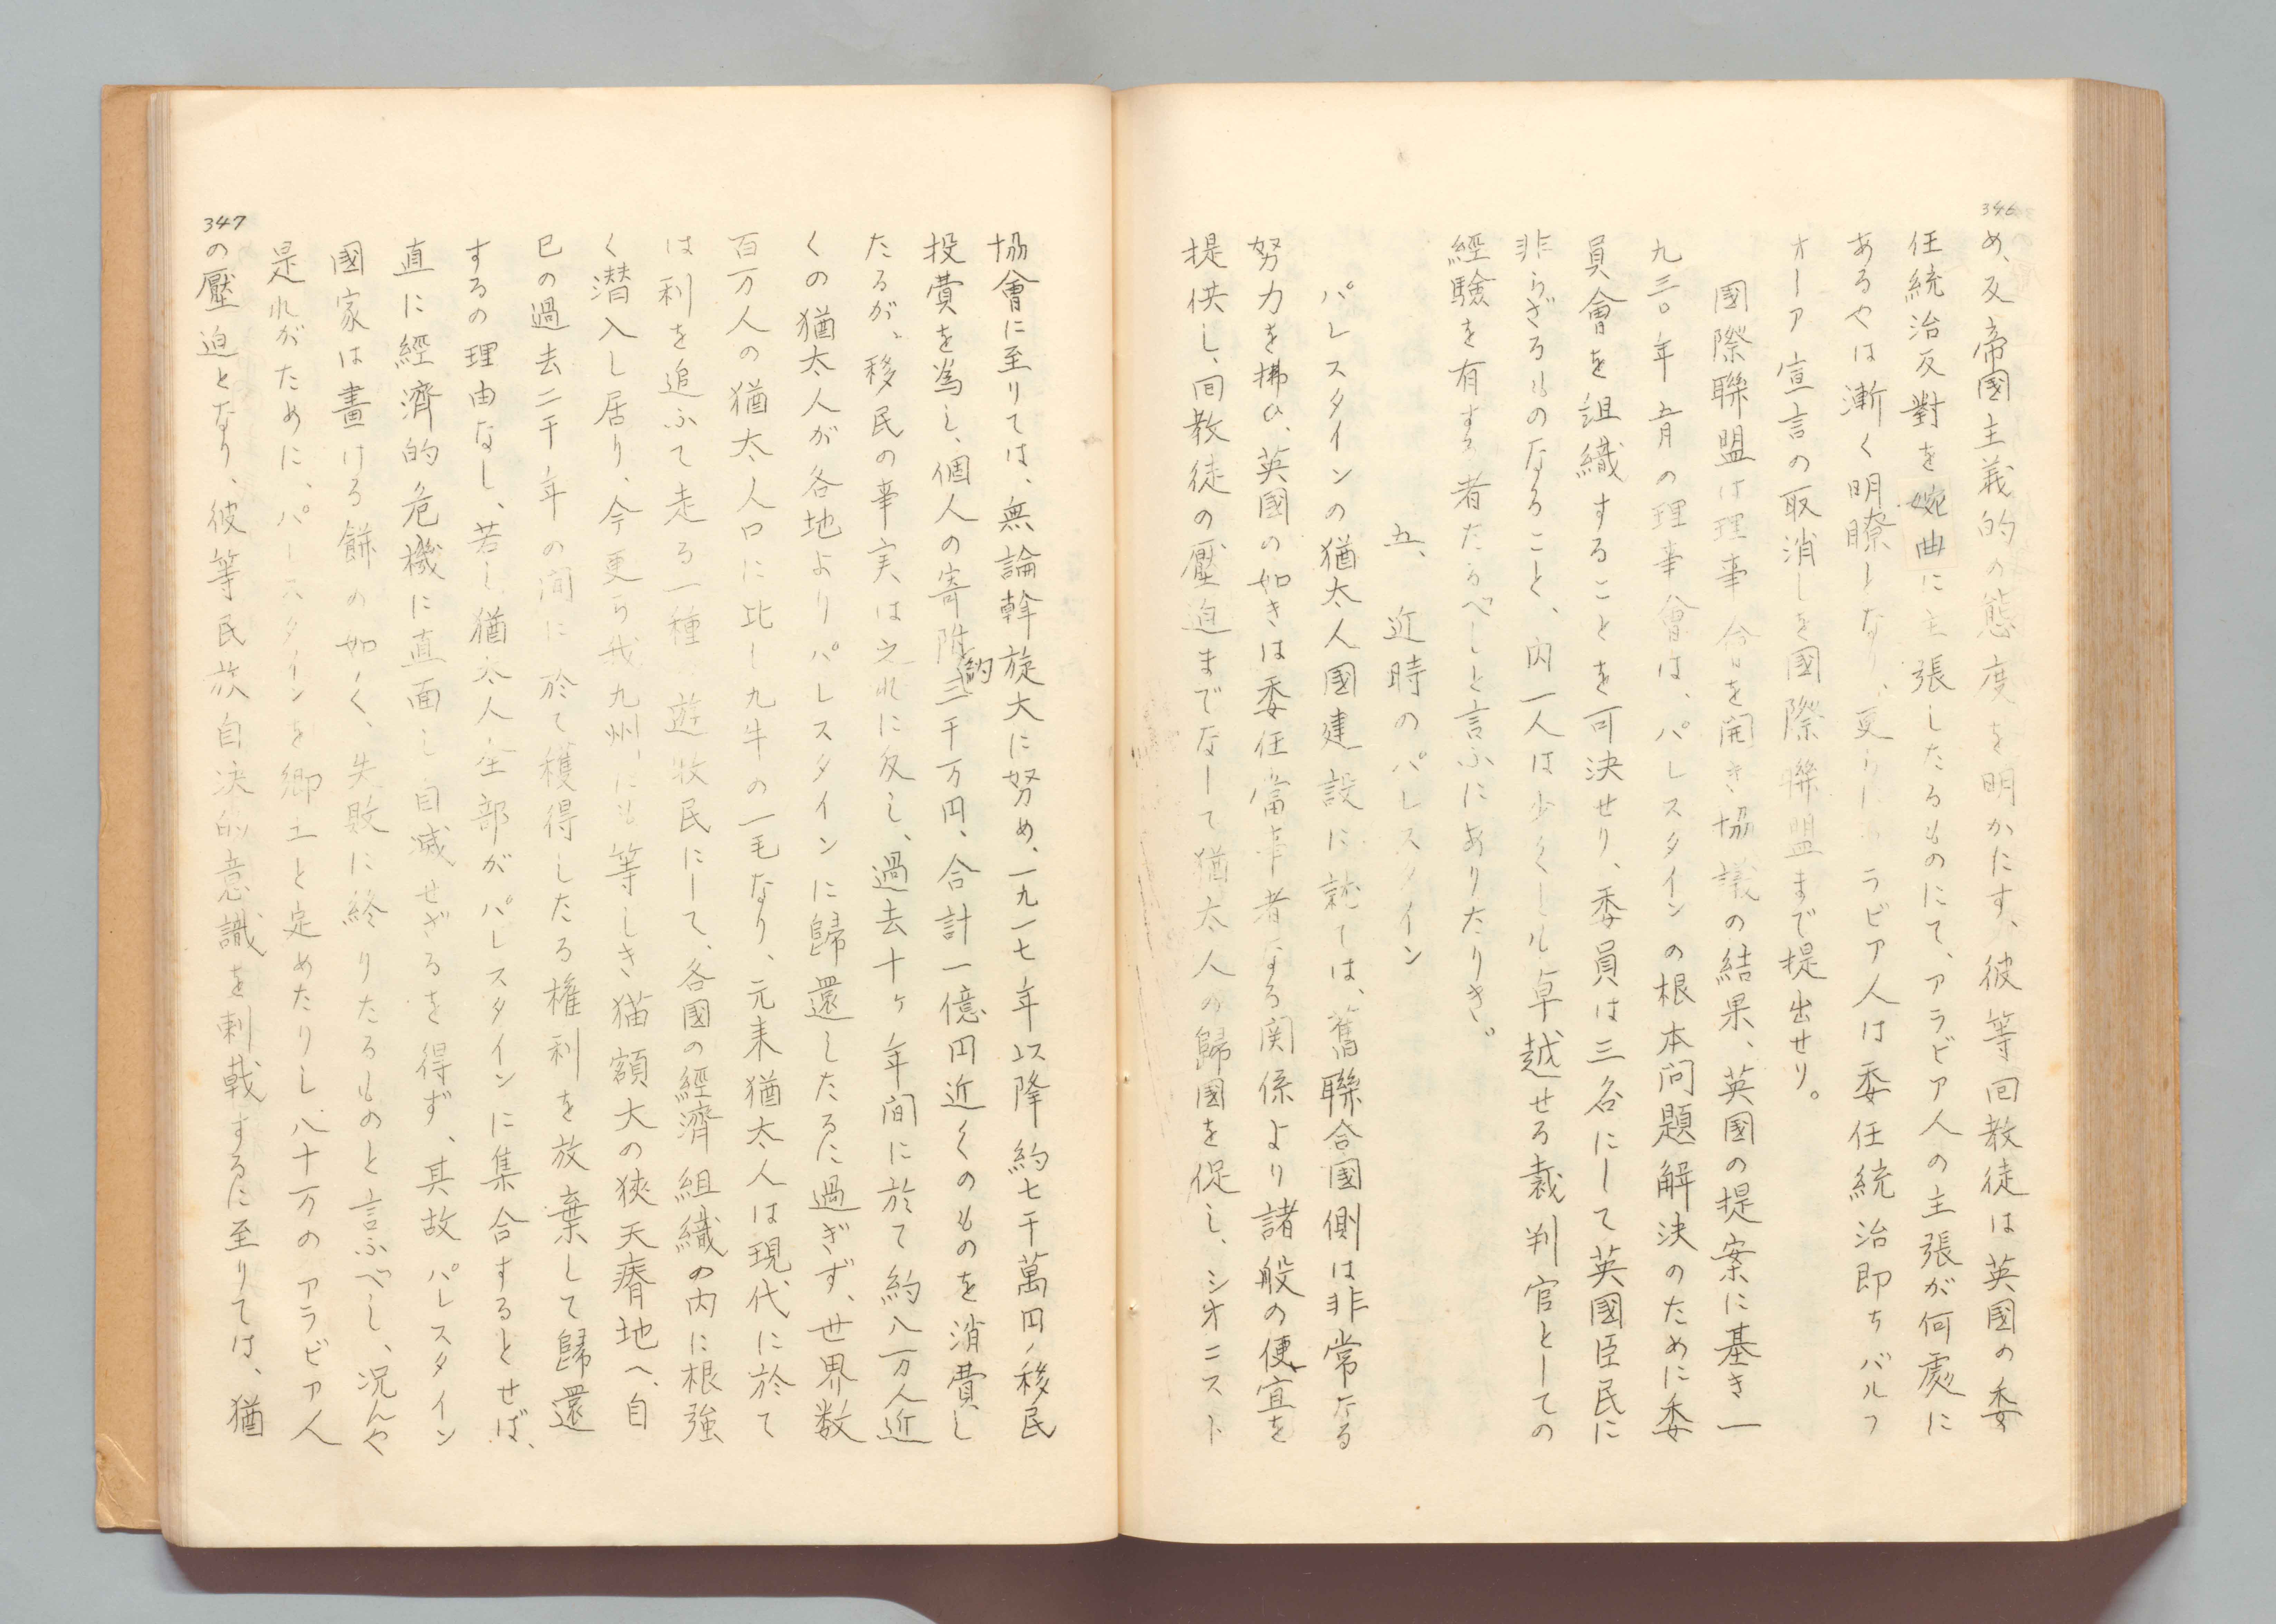 346
め、又帝國主義的の態度を明かにす、彼等回教徒は英國の委
任統治反對を婉曲に主張したるものにて、アラビア人の主張が何處に
あるやは漸く明瞭となり、更らにアラビア人は委任統治即ちバルフ
オーア宣言の取消しを國際聯盟まで提出せり。
國際聯盟は理事會を開き協議の結果、英國の提案に基き一
九三〇年一月の理事會は、パレスタインの根本问題解決のために委
員會を組織することを可決せり、委員は三名にして英國臣民に
非らざるものなること、内一人は少くしル卓越せる裁判官としての
經驗を有する者たるべしと言ふにありたりき。
五、近時のパレスタイン
パレスタインの猶太人國建設に就ては、舊聯合國側は非常なる
努力を拂ひ、英國の如きは委任當事者なる関係より諸般の便宜を
提供し、回教徒の壓迫までなして猶太人の歸國を促し、シオニスト
347
協會に至りては、無論斡旋大に努め、一九一七年以降約七千萬円、移民
投費を爲し、個人の寄附約三千万円、合計一億円近くのものを消費し
たるが、移民の事実は之れに反し、過去十ヶ年間に於て約八万人近
くの猶太人が各地よりパレスタインに歸還したるに過ぎず、世界数
百万人の猶太人口に比し九牛の一毛なり、元来猶太人は現代に於て
は利を追ふて走る一種の遊牧民にして、各國の經濟組織の内に根強
く潜入し居り、今更ら我九州にも等しき猫額大の狹天瘠地へ、自
已の過去二千年の间に於て穫得したる權利を放棄して歸還
するの理由なし、若し猶太人全部がパレスタインに集合するとせば、
直に經濟的危機に直面し自滅せざるを得ず、其故パレスタイン
國家は畫ける餅の如く、失敗に終りたるものと言ふべし、況んや
是れがために、パレスタインを郷土と定めたりし八十万のアラビア人
の壓迫となり、彼等民族自決的意識を刺戟するに至りては、猶